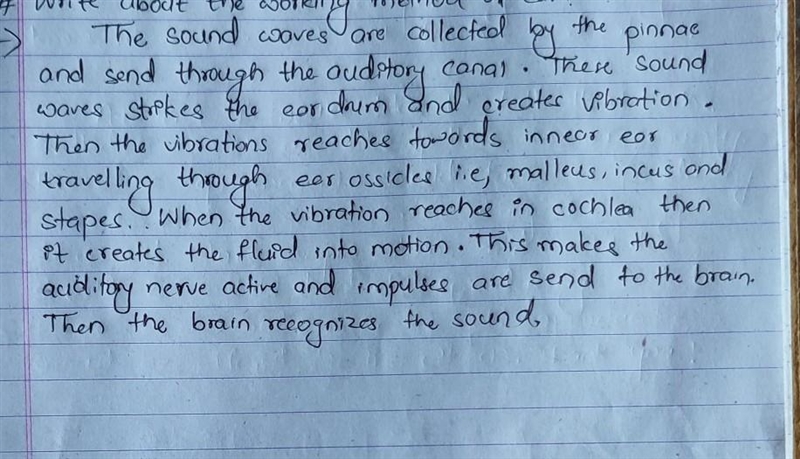 Write about the working method of
→ The sound waves are collected by the pinnae
and send through the auditory canal. These sound
waves strikes the eardrum and creates vibration.
Then the vibrations reaches towords innear ear
travelling through ear ossicles i.e, malleus, incus and
stapes. When the vibration reaches in cochlea then
it creates the fluid into motion. This makes the
auditory nerve active and impulses are send to the brain.
Then the brain recognizes the sound.